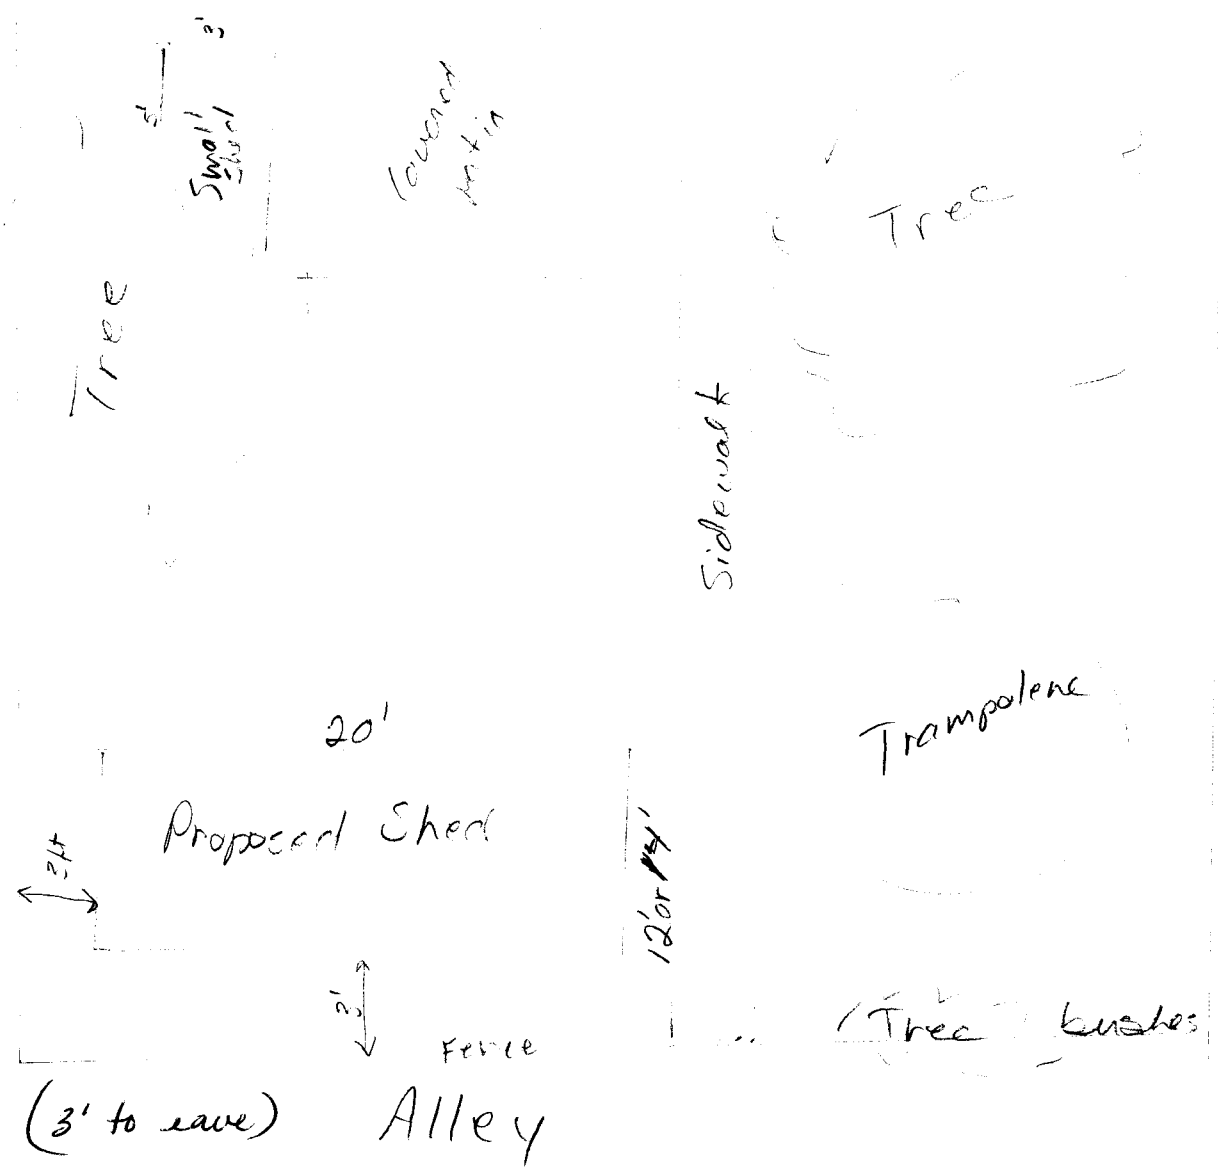 3'
5'
Small
Shed
Tree
Tree
Sidewalk
Trampolene
20'
Proposed Shed
3ft
12' or 14'
3'
Fence
Tree bushes
(3' to eave)
Alley